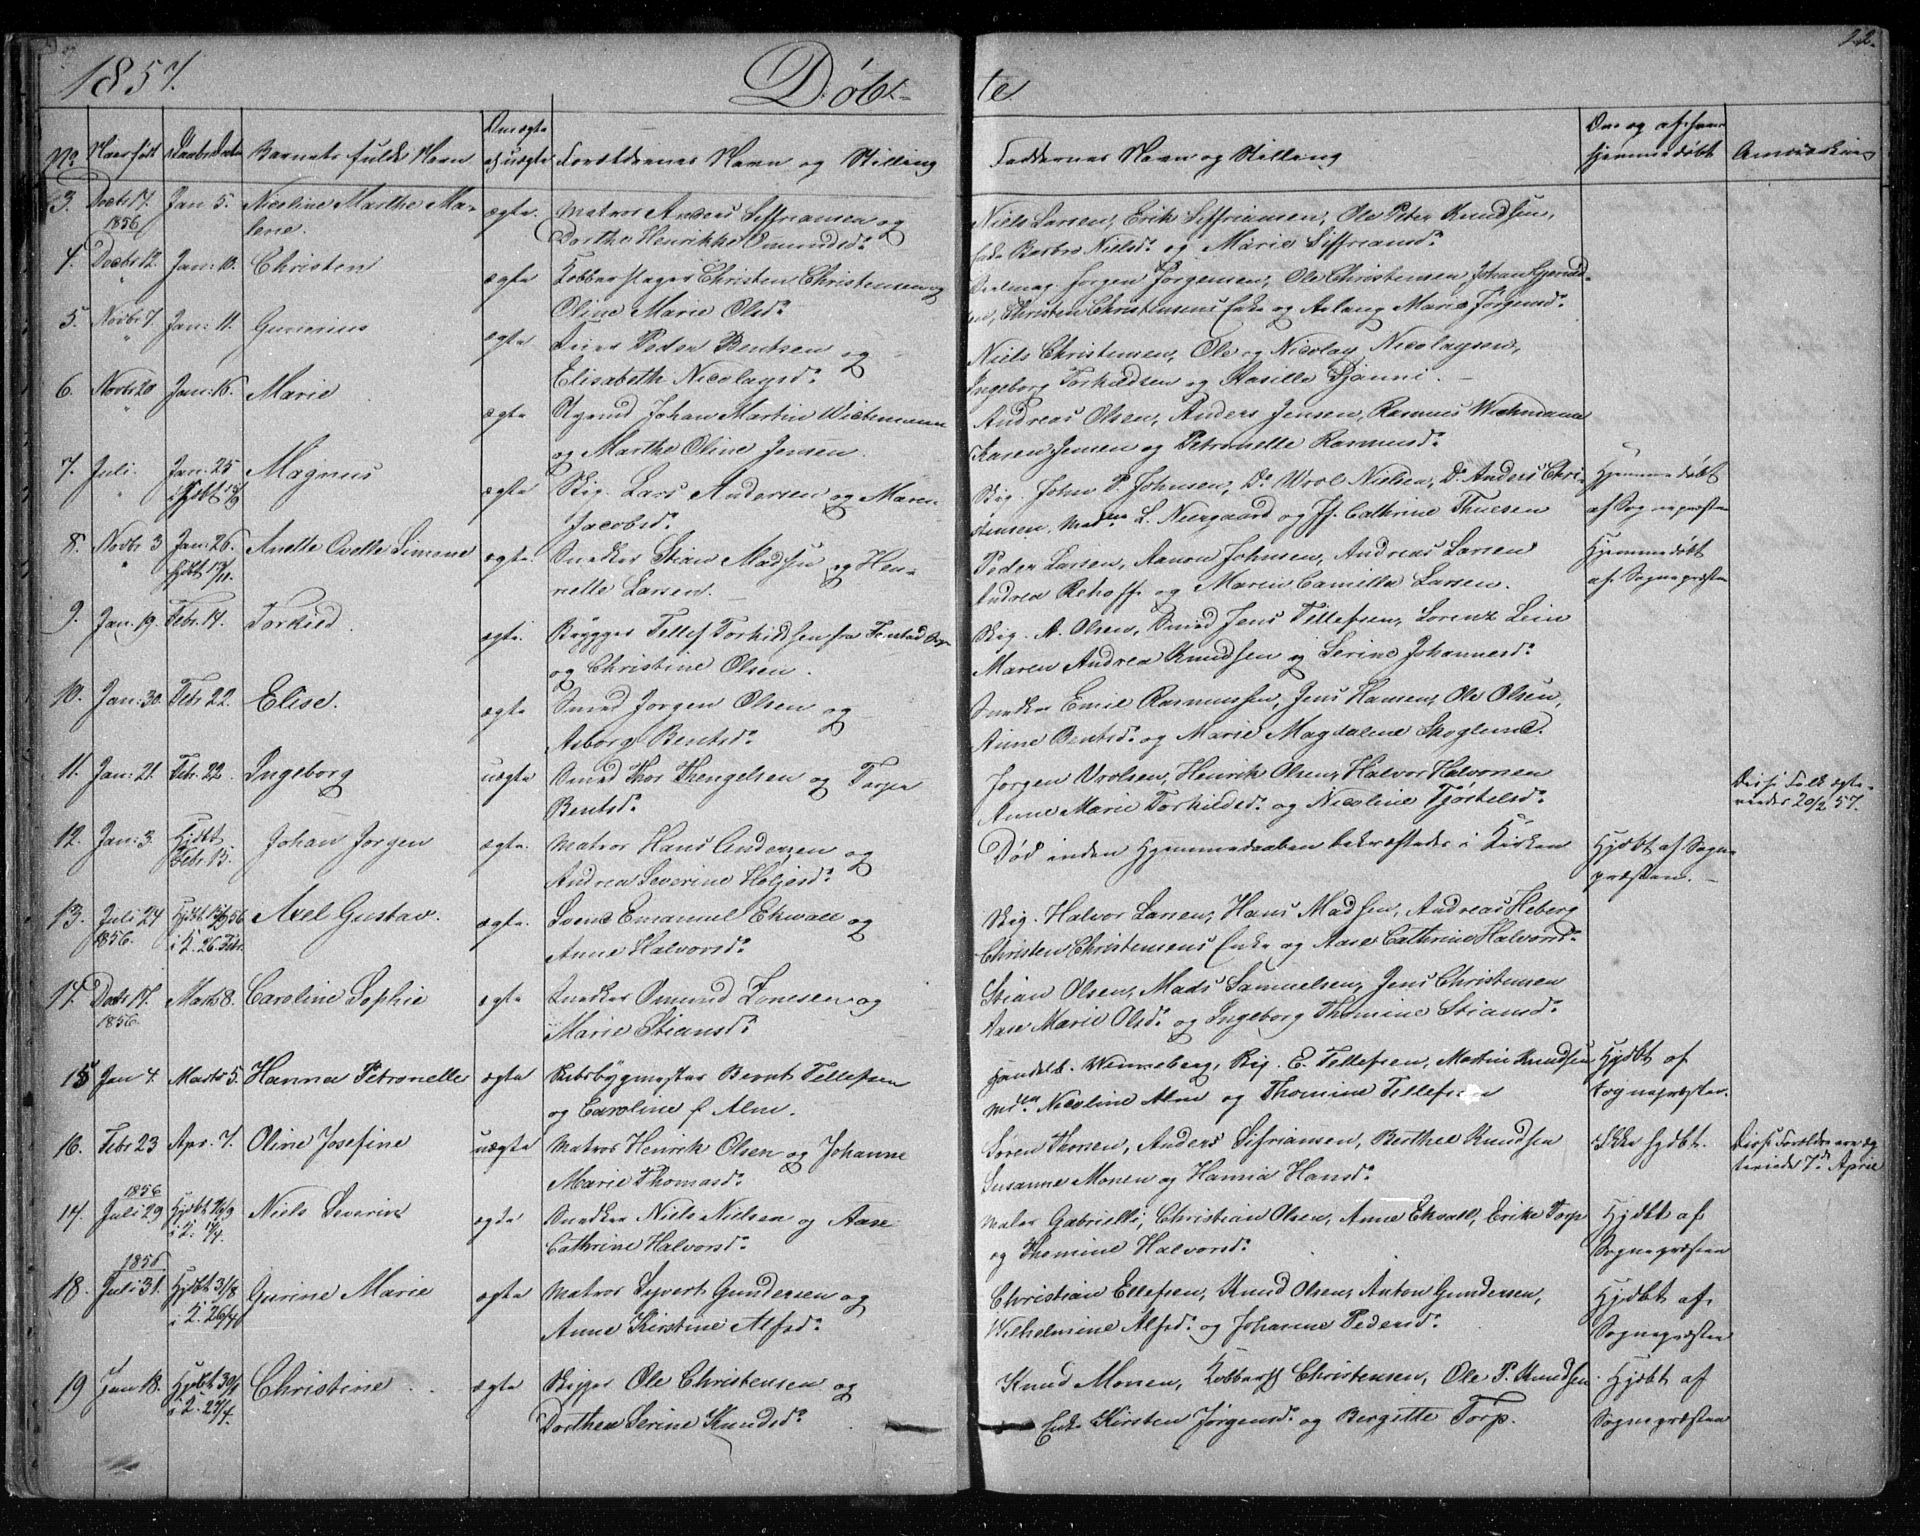 1857. Døb-
te
22.
No Naar født Daabs Datum Barnets fulde Navn Om ægte el. uægte Forældrenes Navn og Stilling
Faddernes Navn og Stilling Om og af hvem hjemmedøbt
3. Decbr 17. 1856 Jan 5. Nicoline Marthe Ma- ægte. Matros Anders Siffriansen og
lene. Dorthe Henrikke Omundsdr
Niels Larsen, Erik Siffriansen, Ole Peter Knudsen,
Barbro Nielsdr og Marie Siffriansdr
4. Decbr 12. Jan: 10. Christen ægte Kobberslager Christen Christensen og
Oline Marie Olsdr
Jørgen Jørgensen, Ole Christensen Johan
Christen Christensens Enke og Aslaug Marie Jørgensdr
5. Novbr 7 Jan: 11. Gunerius ægte Peder Bentsen og
Elisabeth Nicolaysdr
Niels Christensen, Ole og Nicolay Nicolaysen,
Ingeborg Torkildsen og
6. Novbr 20 Jan: 16. Marie ægte Johan Martin Wichmann
og Marthe Oline Jensen.
Andreas Olsen, Anders Jensen, Rasmus Wichmann
Karen Jensen og Petronelle Rasmusdr
7. Juli. Jan. 25 Magnus ægte Skip. Lars Andersen og Maren
Jacobsdr
Skip. John P. Johnsen, Do Wrol Nielsen, Do Anders Chri-
stensen, Madam L. Neergaard og Jf. Cathrine Thuesen
Hjemmedøbt
af Sognepræsten
8. Novbr 3 Jan: 26. Anette Ovelle Simone ægte. Snedker Stian Madsen og Hen-
riette Larsen.
Peder Larsen, Aanon Johnsen, Andreas Larsen
Andrea Rehoff og Maren Camilla Larsen.
Hjemmedøbt
af Sognepræsten
9. Jan. 19. Febr. 14. Torkild. ægte. Brygger Tellef Torkildsen fra
og Christine Olsen.
Skip. A. Olsen, Smed Jens Tellefsen, Lorenz Lein
Maren Andrea Knudsen og Serine Johannesdr
10. Jan: 30. Febr. 22. Elise. ægte Smed Jørgen Olsen og
Asborg Bentsdr
Snedker Emil Rasmussen, Jens Hansen, Ole Olsen,
Anne Bentsdr og Marie Magdalene Skoglund.
11. Jan: 21. Febr. 22. Ingeborg uægte Smed Thor Thengelsen og Torjer
Bentsdr
Jørgen Wrolsen, Henrik Olsen, Halvor Halvorsen
Anne Marie Torkildsdr og Nicoline Tjøstelsdr
Disse Folk ægte-
viedes 20/2 57.
12. Jan: 3. Hjdbt Febr. 15. Johan Jørgen ægte. Matros Hans Andersen og
Andrea Severine Heljesdr
Død inden Hjemmedaaben bekræftedes i Kirken
Hjdbt af Sogne-
præsten.
13. Juli 24 1856. i K. 26 Febr. Axel Gustav. ægte. Svend Emanuel Ekvall og
Anne Halvorsdr
Skip. Halvor Larsen, Hans Madsen, Andreas Heberg
Christen Christensens Enke og Aase Cathrine Halvorsdr
14. Decbr 17. 1856. Marts 8. Caroline Sophie ægte Snedker Omund Zonesen og
Marie Stiansdr
Stian Olsen, Mads Samuelsen, Jens Christensen
Aase Marie Olsdr og Ingeborg Thomine Stiansdr
15 Jan 4. Marts 5. Hanna Petronelle ægte Skibsbygmester Bernt Tellefsen
og Caroline f. Alm.
Handelsb. Wenneberg, Skip. E. Tellefsen, Martin Knudsen
Mdm Nicoline Alm og Thomine Tellefsen
Hjdbt af
Sognepræsten.
16. Febr 23 Apr. 7. Oline Josefine uægte Matros Henrik Olsen og Johanne
Marie Thomasdr
Søren Thorsen, Anders Sifriansen, Berthe Knudsen
Susanne Monen og Hanna Hansdr
Ikke hjdbt.
Disse Forældre ere æg-
teviede 7de April
17. 1856 Juli 29 Hjdbt 26/9 i K. 17/4. Niels Severin ægte Snedker Niels Nielsen og Aase
Cathrine Halvorsdr
Maler Gabrielli, Christian Olsen, Anne Ekvall, Erike Torp
og Thomine Halvorsdr
Hjdbt af
Sognepræsten
18. 1856 Juli 31. Hjdbt 31/8 i K. 26/4 Gurine Marie ægte Matros Syvert Gundersen og
Anne Kirstine Alfsdr
Christian Ellefsen, Knud Olsen, Anton Gundersen,
Wilhelmine Alfsdr og Johanne Pedersdr
Hjdbt af
Sognepræsten
19 Jan 18. Hjdbt i K. 27/4. Christine ægte Skipper Ole Christensen og
Dorthea Serine Knudsdr
Knud Monen, Kobbersl. Christensen, Ole P. Knudsen
Enke Kirsten Jørgensdr og Bergitte Torp.
Hjdbt af
Sognepræsten